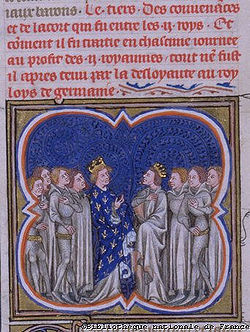 iaux barons. Le tiers. Des conuenances
et de lacort qui fu entre les .ij. roys. Et
coment il fu traitie en chascune iournee
au profit des .ij. royaumes. tout ne fust
il apres tenu par la desloyaute au roy
loys de germanie.
©Bibliothèque nationale de France